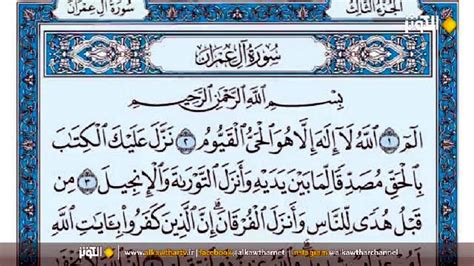 الجزء الثالث سورة آل عمران
الكوثر
سُورَةُ آلِ عِمْرَانَ
بِسْمِ اللَّهِ الرَّحْمَٰنِ الرَّحِيمِ
الٓمٓ ١ اللَّهُ لَا إِلَٰهَ إِلَّا هُوَ الْحَيُّ الْقَيُّومُ ٢ نَزَّلَ عَلَيْكَ الْكِتَٰبَ
بِالْحَقِّ مُصَدِّقًا لِمَا بَيْنَ يَدَيْهِ وَأَنزَلَ التَّوْرَىٰةَ وَالْإِنجِيلَ ٣ مِن
قَبْلُ هُدًى لِلنَّاسِ وَأَنزَلَ الْفُرْقَانَ ۗ إِنَّ الَّذِينَ كَفَرُوا بِـَٔايَٰتِ اللَّهِ
الكوثر www.alkawthartv.ir | facebook@alkawtharnet | Instagram